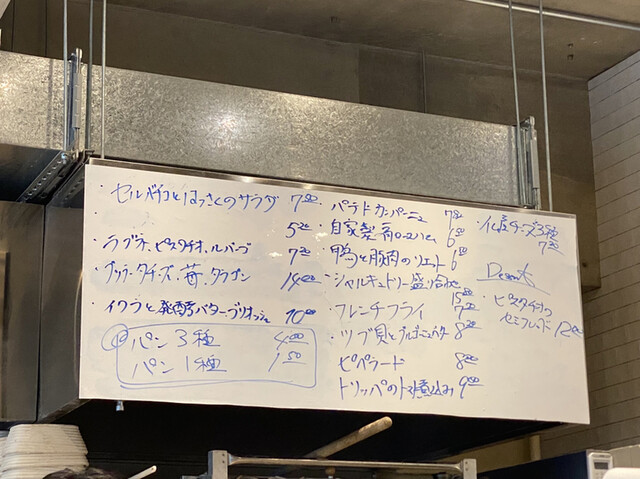 ・セルバチコとはっさくのサラダ 7.00
5.00
・ラブネ、ピスタチオ、ルバーブ 7.00
・ブッラータチーズ、苺、タラゴン 14.00
・イクラと発酵バターブリオッシュ 10.00
パン3種 4.00
パン1種 1.50
・パテ ド カンパーニュ 7.00
・自家製 ハム 6.00
・鴨と豚肉のリエット 6.00
・シャルキュトリー盛り合わせ 15.00
・フレンチフライ 7.00
・ツブ貝とブルゴーニュバター 8.00
ピペラード 8.00
トリッパのトマト煮込み 9.00
・チーズ3種
7.00
Dessert
・ピスタチオの
セミフレッド 12.00